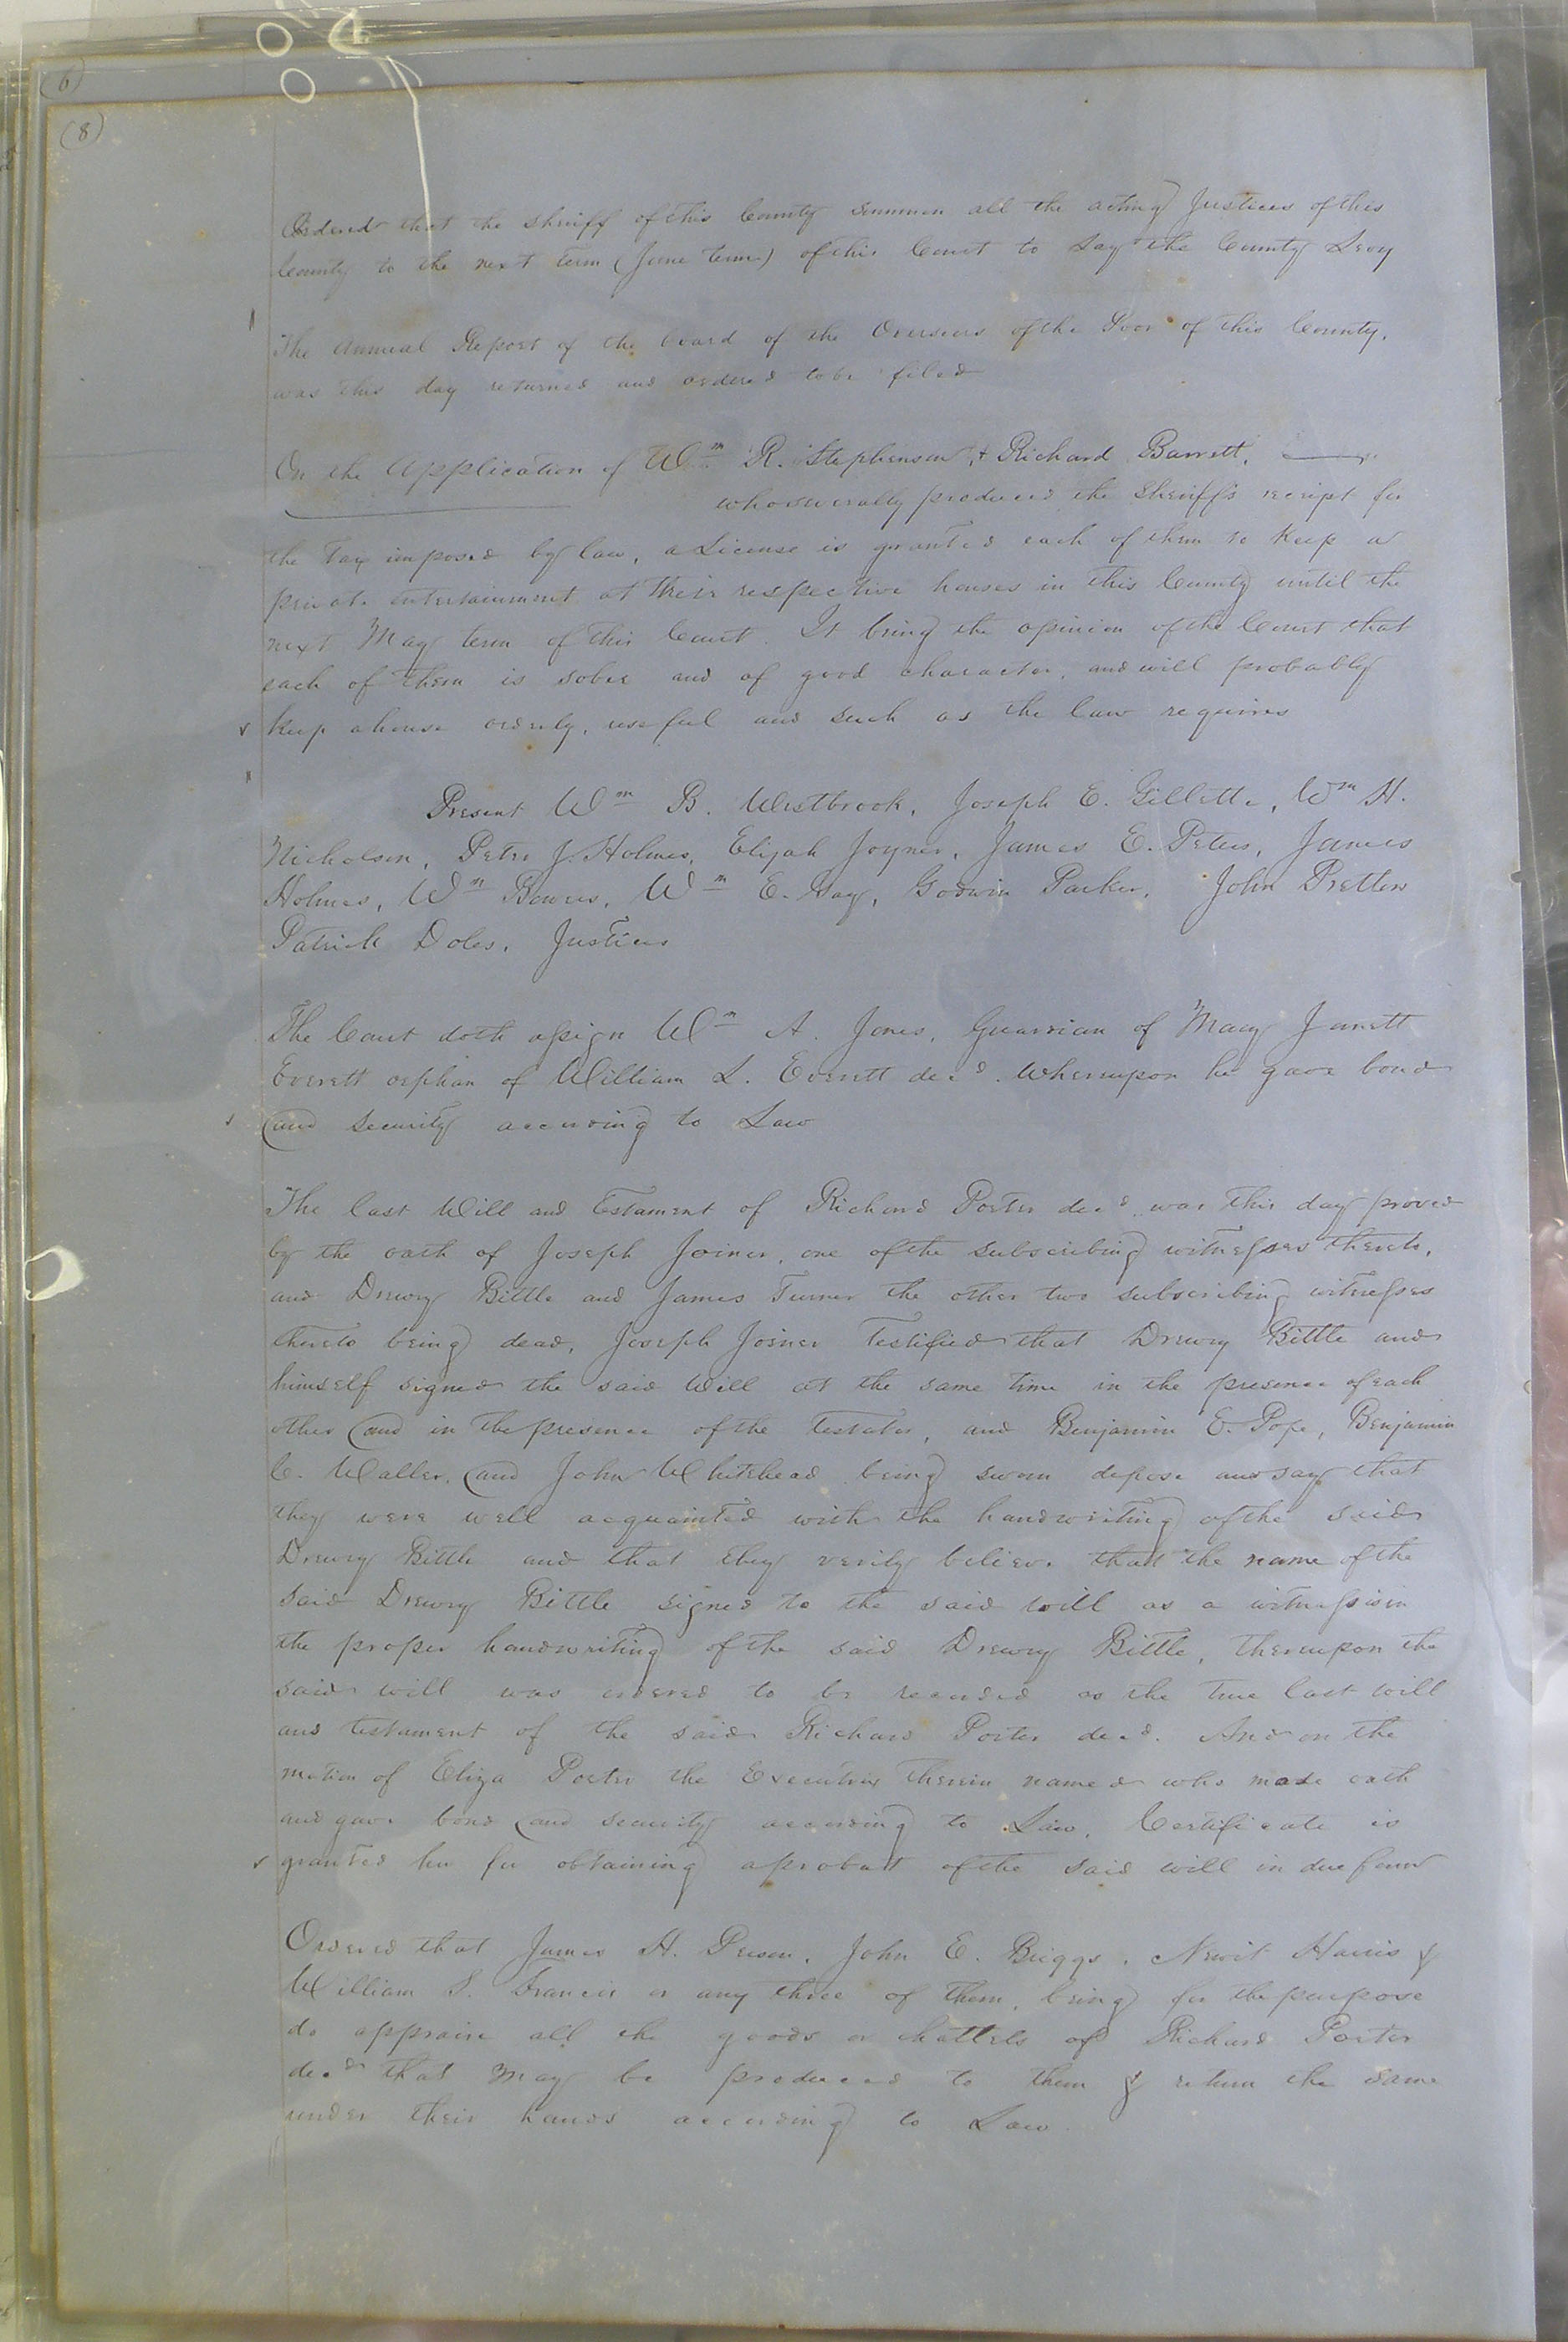 (6)
(8)
Ordered that the Sheriff of this County summon all the acting Justices of this
County to the next term (June term) of this Court to Lay the County Levy
The Annual Report of the board of the Overseers of the Poor of this County,
was this day returned and ordered to be filed
On the Application of Wm R. Stephenson, & Richard Barrett,
who severally produced the Sheriff's receipt for
the Tax imposed by law, a License is granted each of them to Keep a
private entertainment at their respective houses in this County until the
next May term of this Court. It being the opinion of the Court that
each of them is sober and of good character, and will probably
keep a house orderly, useful and such as the law requires
Present Wm B. Westbrook, Joseph E. Gillette, Wm H.
Nicholson, Peter J. Holmes, Elijah Joyner, James E. Peters, James
Holmes, Wm Bowers, Wm E. Gay, Godwin Parker, John Pretlow
Patrick Doles, Justices
The Court doth assign Wm A. Jones, Guardian of Mary Jarrett
Everett orphan of William L. Everett decd. Whereupon he gave bond
and security according to Law
The last Will and Testament of Richard Porter decd. was this day proved
by the oath of Joseph Joiner, one of the subscribing witnesses thereto,
and Drewry Bittle and James Turner the other two subscribing witnesses
thereto being dead, Joseph Joiner Testified that Drewry Bittle and
himself signed the said Will at the same time in the presence of each
other and in the presence of the Testator, and Benjamin E. Pope, Benjamin
C. Waller, and John Whitehead being sworn depose and say that
they were well acquainted with the handwriting of the said
Drewry Bittle and that they verily believe that the name of the
said Drewry Bittle signed to the said will as a witness is in
the proper handwriting of the said Drewry Bittle, thereupon the
said will was ordered to be recorded as the true last will
and testament of the said Richard Porter decd. And on the
motion of Eliza Porter the Executrix therein named who made oath
and gave bond and security according to Law, Certificate is
granted her for obtaining a probat of the said will in due form
Ordered that James H. Prison, John E. Briggs, Newit Harris &
William S. Francis or any three of them, being for the purpose
do appraise all the goods or chattels of Richard Porter
decd that may be produced to them & return the same
under their hands according to Law